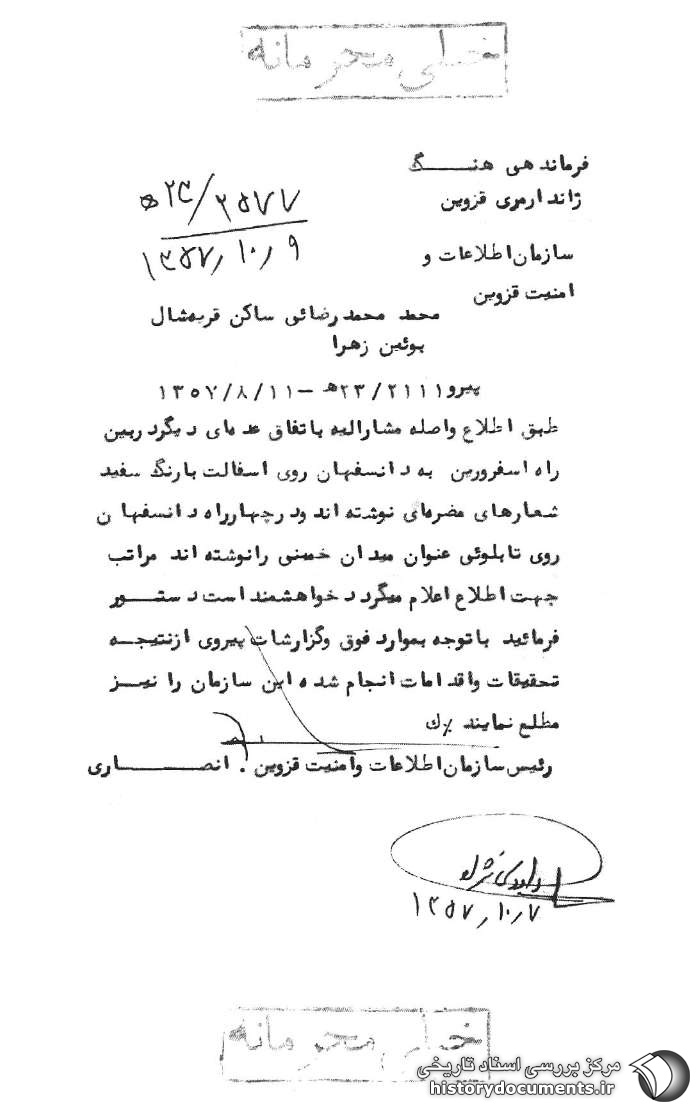 خیلی محرمانه
فرماندهی هنـــگ
ژاندارمری قزوین
۲۵۷۷/۲۳ه‍
۱۳۵۷٫۱۰٫۹
سازمان اطلاعات و
امنیت قزوین
محمد محمد رضائی ساکن قریه شال
بوئین زهرا
پیرو ۲۱۱۱/۲۳ه‍ـ ۱۳۵۷/۸/۱۱
طبق اطلاع واصله مشارالیه باتفاق عده‌ای دیگر دربین
راه اسفرورین به دانسفهان روی اسفالت بارنگ سفید
شعارهای مضره‌ای نوشته اند و در چهارراه دانسفهان
روی تابلوئی عنوان میدان خمینی را نوشته اند مراتب
جهت اطلاع اعلام میگردد خواهشمند است دستـــور
فرمائید باتوجه بموارد فوق وگزارشات پیروی ازنتیجـه
تحقیقات واقدامات انجام شده این سازمان را نیـــز
مطلع نمایند %ک
رئیس سازمان اطلاعات وامنیت قزوین . انصـــــاری
۱۳۵۷٫۱۰٫۷
خیلی محرمانه
مرکز بررسی اسناد تاریخی
historydocuments.ir